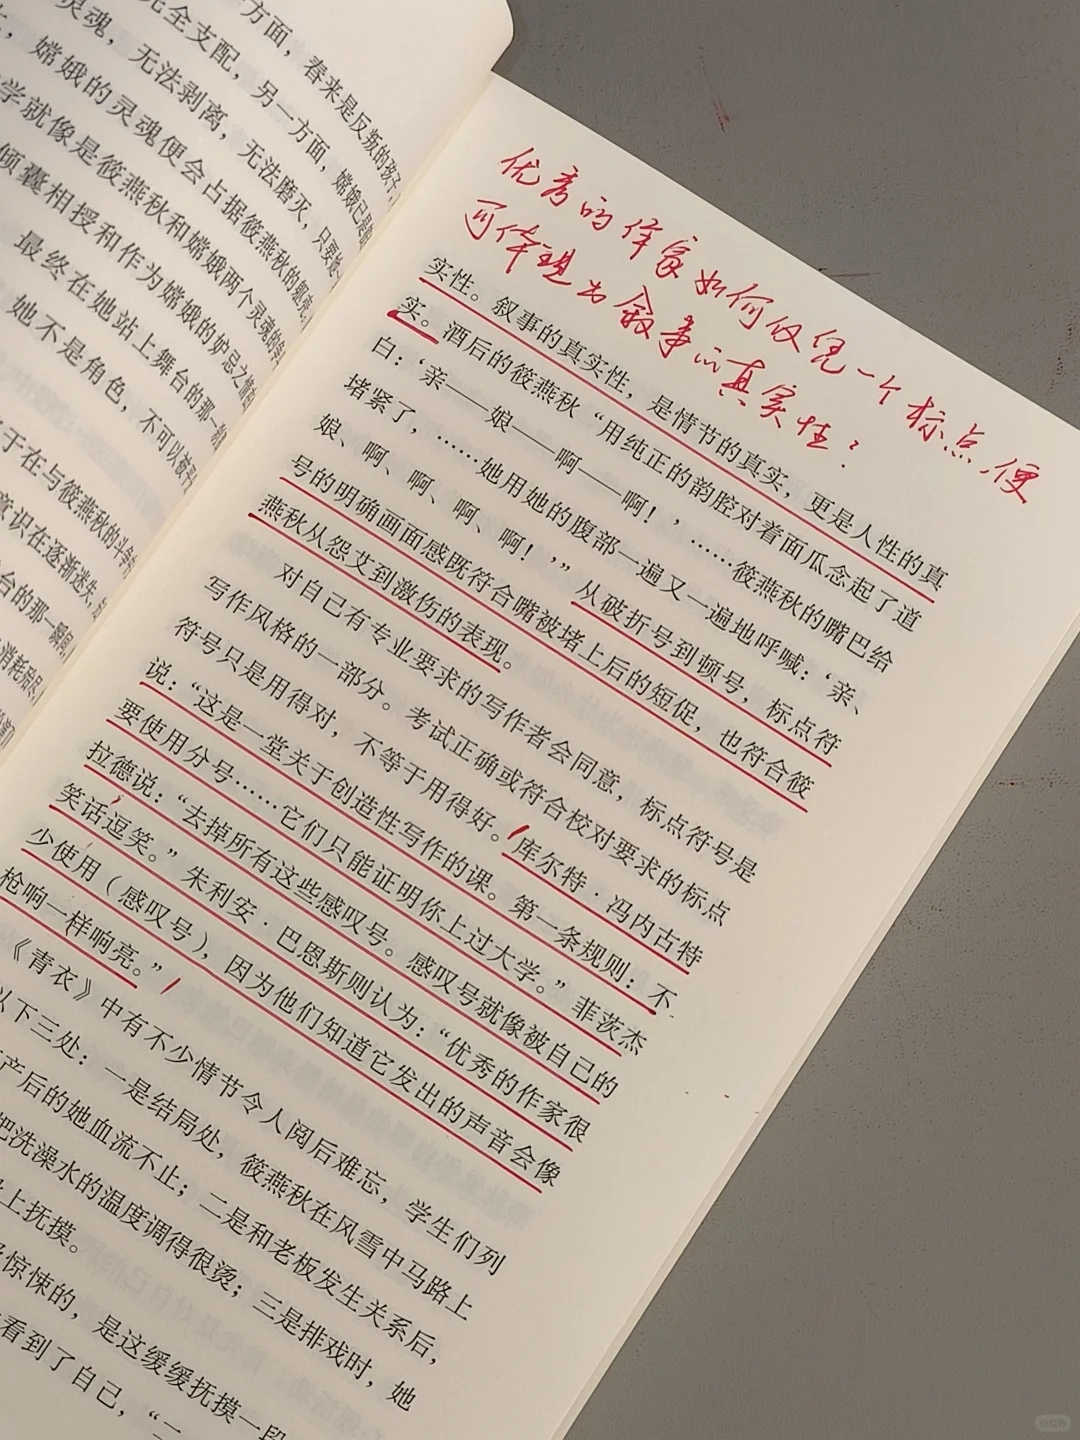 方面,春来是反叛的孩子,
完全支配,另一方面,嫦娥已是
灵魂,无法剥离,无法磨灭,只要她
嫦娥的灵魂便会占据筱燕秋的躯壳。
学就像是筱燕秋和嫦娥两个灵魂的
倾囊相授和作为嫦娥的妒忌之情
最终在她站上舞台的那一
她不是角色,不可以被
于在与筱燕秋的斗争
意识在逐渐迷失,
台的那一瞬间,
消耗殆尽,
优秀的作家如何仅凭一个标点,便
可体现出叙事的真实性?
实性。叙事的真实性,是情节的真实,更是人性的真
实。酒后的筱燕秋“用纯正的韵腔对着面瓜念起了道
白:‘亲——娘——啊——啊!,……筱燕秋的嘴巴给
堵紧了,……她用她的腹部一遍又一遍地呼喊:‘亲、
娘、啊、啊、啊、啊!,”从破折号到顿号,标点符
号的明确画面感既符合嘴被堵上后的短促,也符合筱
燕秋从怨艾到激伤的表现。
对自己有专业要求的写作者会同意,标点符号是
写作风格的一部分。考试正确或符合校对要求的标点
符号只是用得对,不等于用得好。库尔特·冯内古特
说:“这是一堂关于创造性写作的课。第一条规则:不
要使用分号……它们只能证明你上过大学。”菲茨杰
拉德说:“去掉所有这些感叹号。感叹号就像被自己的
笑话逗笑。”朱利安·巴恩斯则认为:“优秀的作家很
少使用(感叹号),因为他们知道它发出的声音会像
枪响一样响亮。”
《青衣》中有不少情节令人阅后难忘,学生们列
以下三处:一是结局处,筱燕秋在风雪中马路上
产后的她血流不止;二是和老板发生关系后,
把洗澡水的温度调得很烫;三是排戏时,她
上抚摸。
惊悚的,是这缓缓抚摸一段
看到了自己,“二
小红书